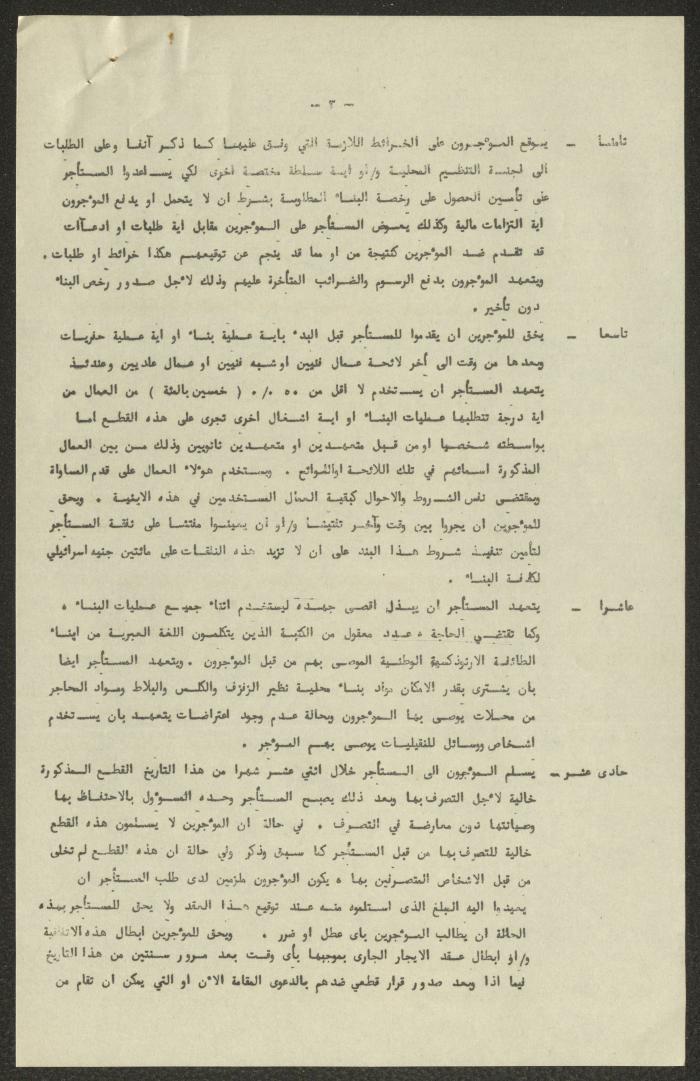 - ٣ -
ثامنة - يوقع الموءجرون على الخرائط اللازمة التي وفق عليهما كما ذكر آنفا وعلى الطلبات
الى لجنة التنظيم المحلية و/او اية سلطة مختصة اخرى لكي يساعدوا المستأجر
على تأمين الحصول على رخصة البناء المطلوبة بشرط ان لا يتحمل او يدفع الموءجرون
اية التزامات مالية وكذلك يعوض المستأجر على الموءجرين مقابل اية طلبات او ادعاآت
قد تقدم ضد الموءجرين كنتيجة من او مما قد ينجم عن توقيعهم هكذا خرائط او طلبات .
ويتعهد الموءجرون بدفع الرسوم والضرائب المتأخرة عليهم وذلك لاجل صدور رخص البناء
دون تأخير .
تاسعا - يحق للموءجرين ان يقدموا للمستأجر قبل البدء باية عملية بناء او اية عملية حفريات
وبعدها من وقت الى آخر لائحة عمال فنيين او شبه فنيين او عمال عاديين وعندئذ
يتعهد المستأجر ان يستخدم لا اقل من ٥٠ ٠/٠ ( خمسين بالمئة ) من العمال من
اية درجة تتطلبها عمليات البناء او اية اشغال اخرى تجرى على هذه القطع اما
بواسطته شخصيا او من قبل متعهدين او متعهدين ثانويين وذلك من بين العمال
المذكورة اسمائهم في تلك اللائحة او اللوائح . ويستخدم هوءلاء العمال على قدم المساواة
وبمقتضى نفس الشروط والاحوال كبقية العمال المستخدمين في هذه الابنية . ويحق
للموءجرين ان يجروا بين وقت وآخر تفتيشا و/او ان يعينوا مفتشا على نفقة المستأجر
لتأمين تنفيذ شروط هذا البند على ان لا تزيد هذه النفقات على مائتين جنيه اسرائيلي
لكافة البناء .
عاشرا - يتعهد المستأجر ان يبذل اقصى جهده ليستخدم اثناء جميع عمليات البناء ،
وكما تقتضي الحاجة ، عدد معقول من الكتبة الذين يتكلمون اللغة العبرية من ابناء
الطائفة الارثوذكسية الوطنية الموصى بهم من قبل الموءجرون . ويتعهد المستأجر ايضا
بان يشترى بقدر الامكان مواد بناء محلية نظير الزفزف والكلس والبلاط ومواد المحاجر
من محلات يوصى بها الموءجرون وبحالة عدم وجود اعتراضات يتعهد بان يستخدم
اشخاص ووسائل للنقليات يوصى بهم الموءجر .
حادى عشر - يسلم الموءجرون الى المستأجر خلال اثني عشر شهرا من هذا التاريخ القطع المذكورة
خالية لاجل التصرف بها وبعد ذلك يصبح المستأجر وحده المسوءول بالاحتفاظ بها
وصيانتها دون معارضة في التصرف . في حالة ان الموءجرين لا يسلمون هذه القطع
خالية للتصرف بها من قبل المستأجر كما سبق وذكر وفي حالة ان هذه القطع لم تخلى
من قبل الاشخاص المتصرفين بها ، يكون الموءجرون ملزمين لدى طلب المستأجر ان
يعيدوا اليه المبلغ الذى استلموه منه عند توقيع هذا العقد ولا يحق للمستأجر بهذه
الحالة ان يطالب الموءجرين باى عطل او ضرر . ويحق للموءجرين ابطال هذه الاتفاقية
و/او ابطال عقد الايجار الجارى بموجبها بأى وقت بعد مرور سنتين من هذا التاريخ
فيما اذا وبعد صدور قرار قطعي ضدهم بالدعوى المقامة الان او التي يمكن ان تقام من